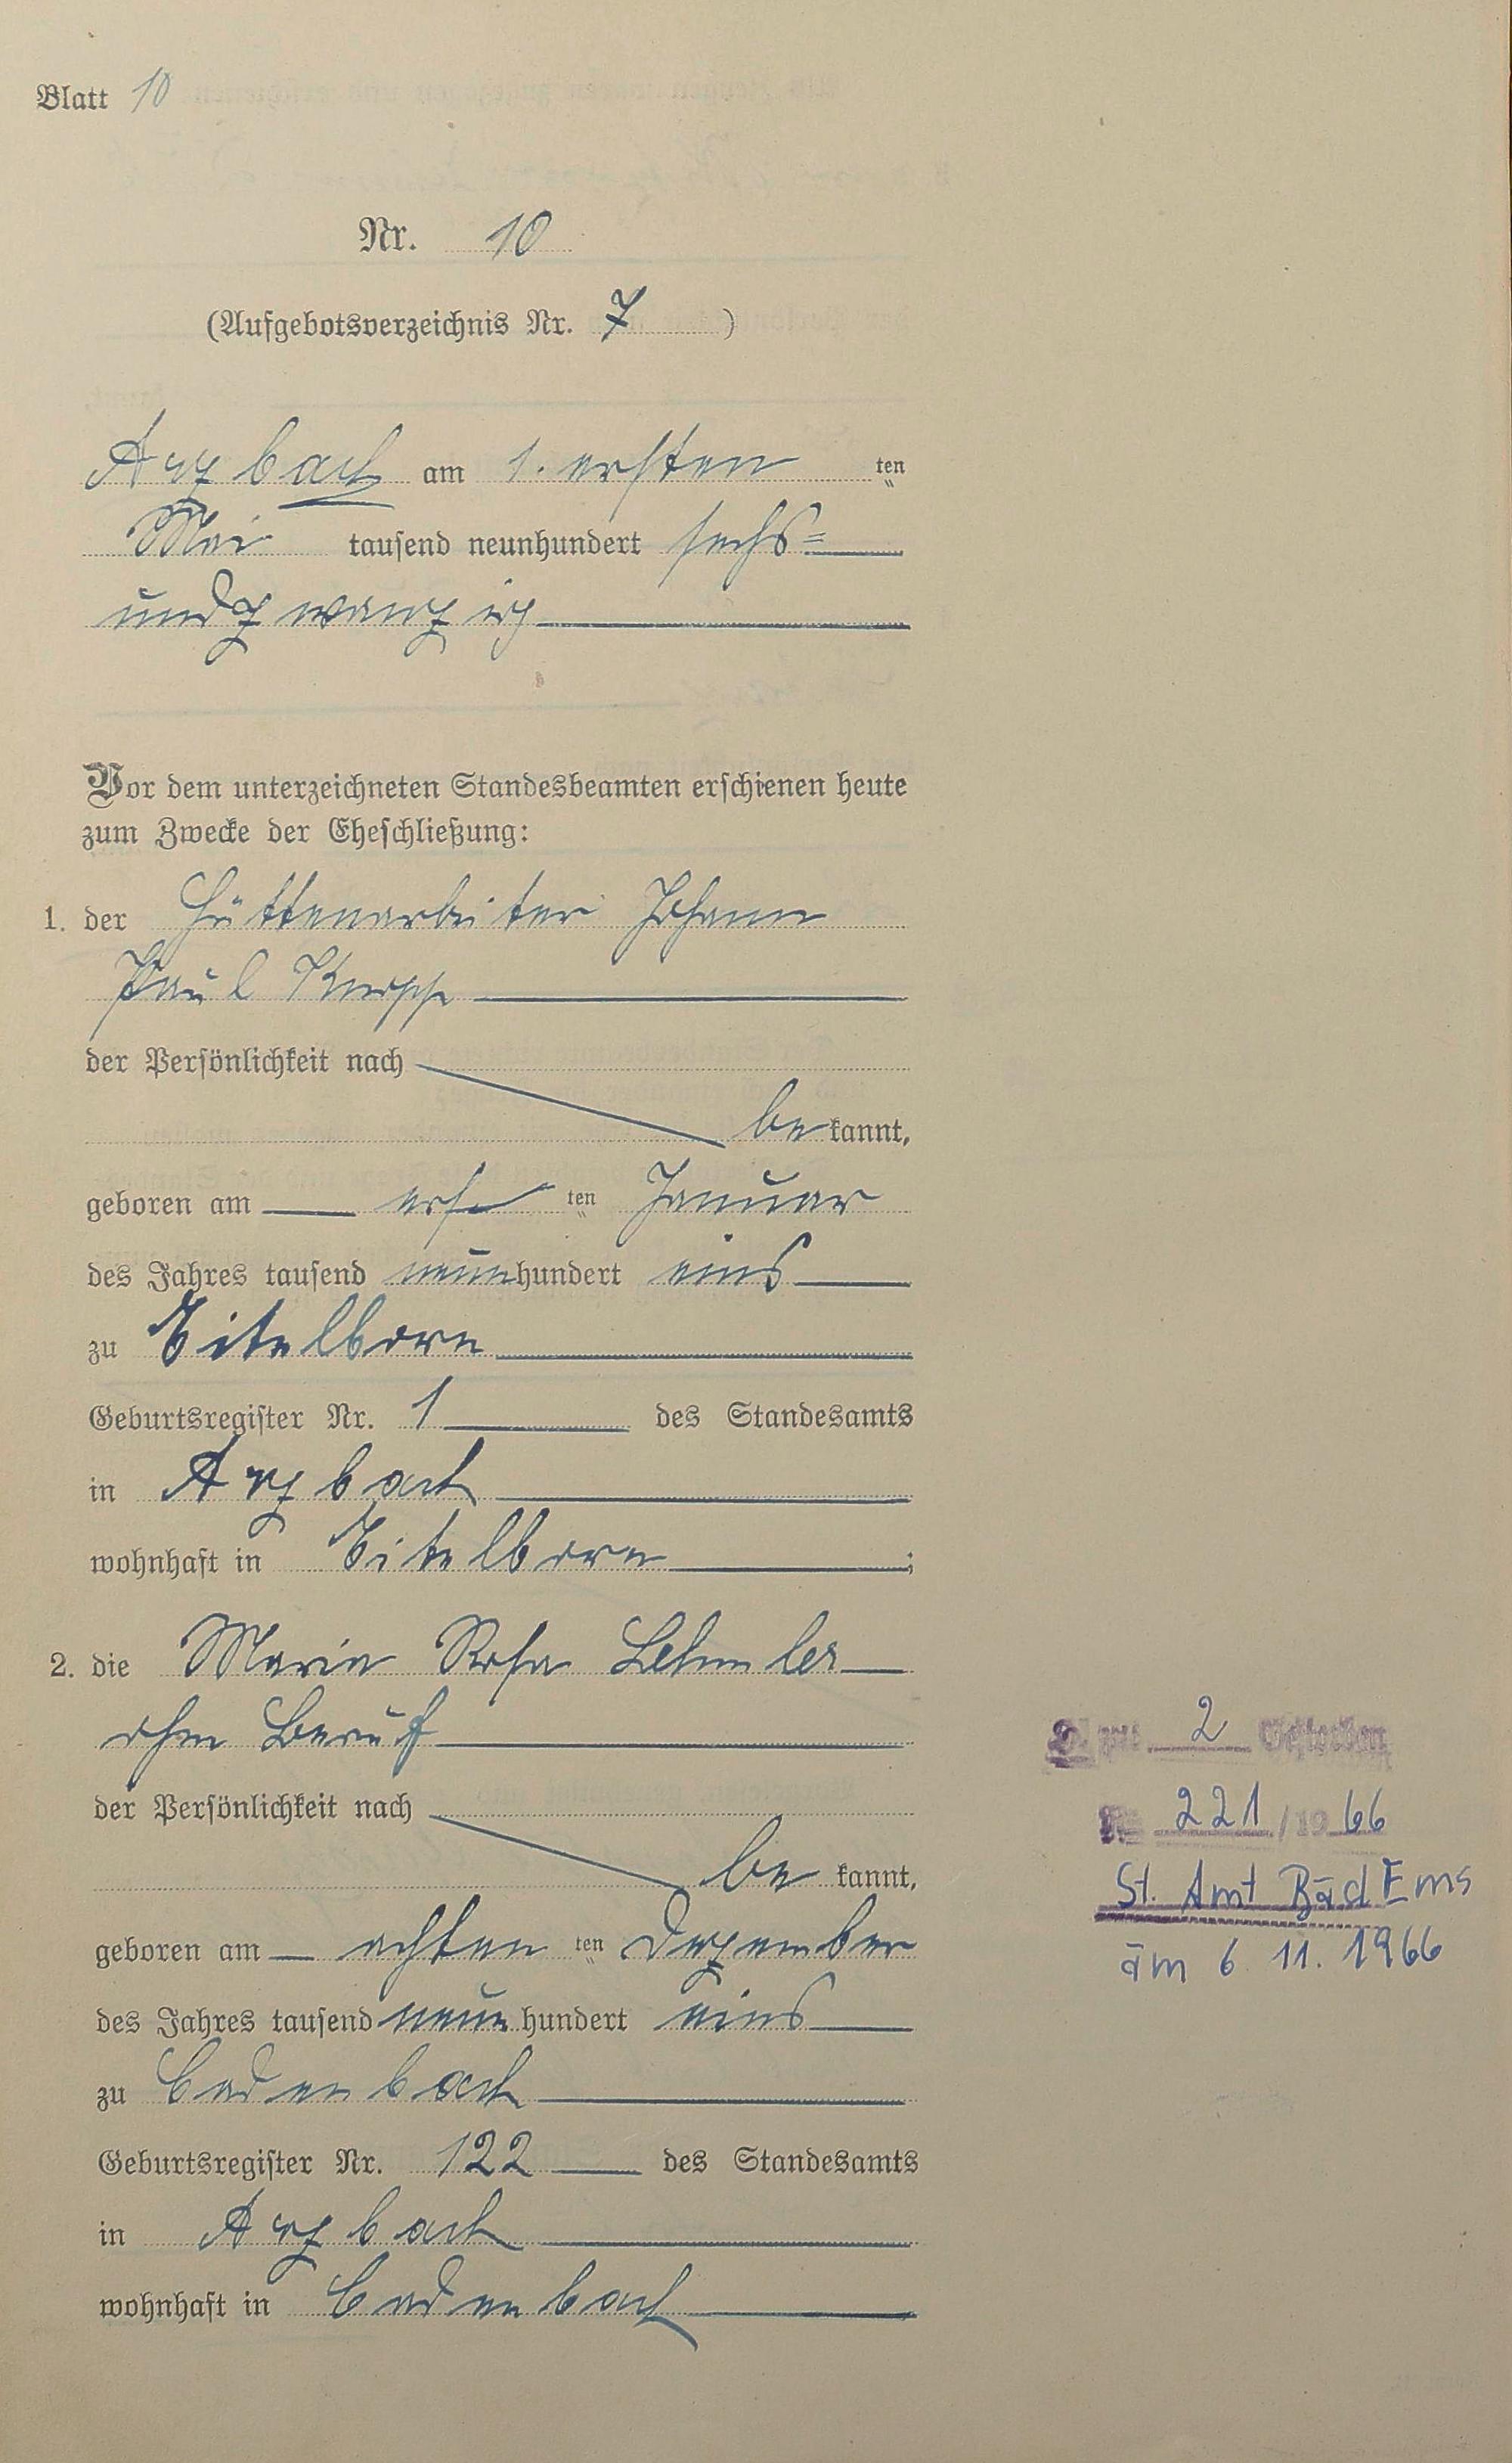 Blatt 10
Nr. 10
(Aufgebotsverzeichnis Nr. 7 )
Arzbach am 1. ersten ten
Mai tausend neunhundert sechs=
undzwanzig
Vor dem unterzeichneten Standesbeamten erschienen heute
zum Zwecke der Eheschließung:
1. der Hüttenarbeiter Johann
Paul Knopp
der Persönlichkeit nach
be kannt,
geboren am ersten Januar
des Jahres tausend neunhundert eins
zu Eitelborn
Geburtsregister Nr. 1 des Standesamts
in Arzbach
wohnhaft in Eitelborn ;
2. die Maria Rosa Lehmler
ohne Beruf
der Persönlichkeit nach
be kannt,
geboren am achten ten Dezember
des Jahres tausend neun hundert eins
zu Cadenbach
Geburtsregister Nr. 122 des Standesamts
in Arzbach
wohnhaft in Cadenbach
zu 2 Gestorben
Nr. 221 / 19 66
St. Amt Bad Ems
am 6. 11. 1966